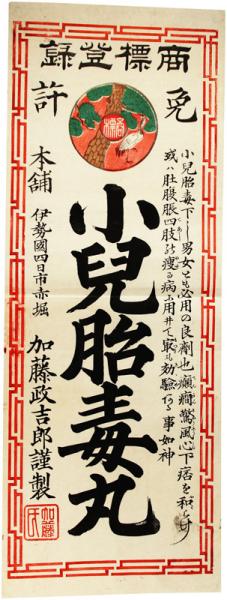 商標登録
免許
商標
小兒胎毒下し男女とも必用の良劑也癲癇驚風心下痞を和らけ
或ハ肚腹脹四肢の瘦る病ニ用井て最も効驗ある事如神
小兒胎毒丸
本舗
伊勢國四日市赤堀
加藤政吉郎謹製
加藤氏